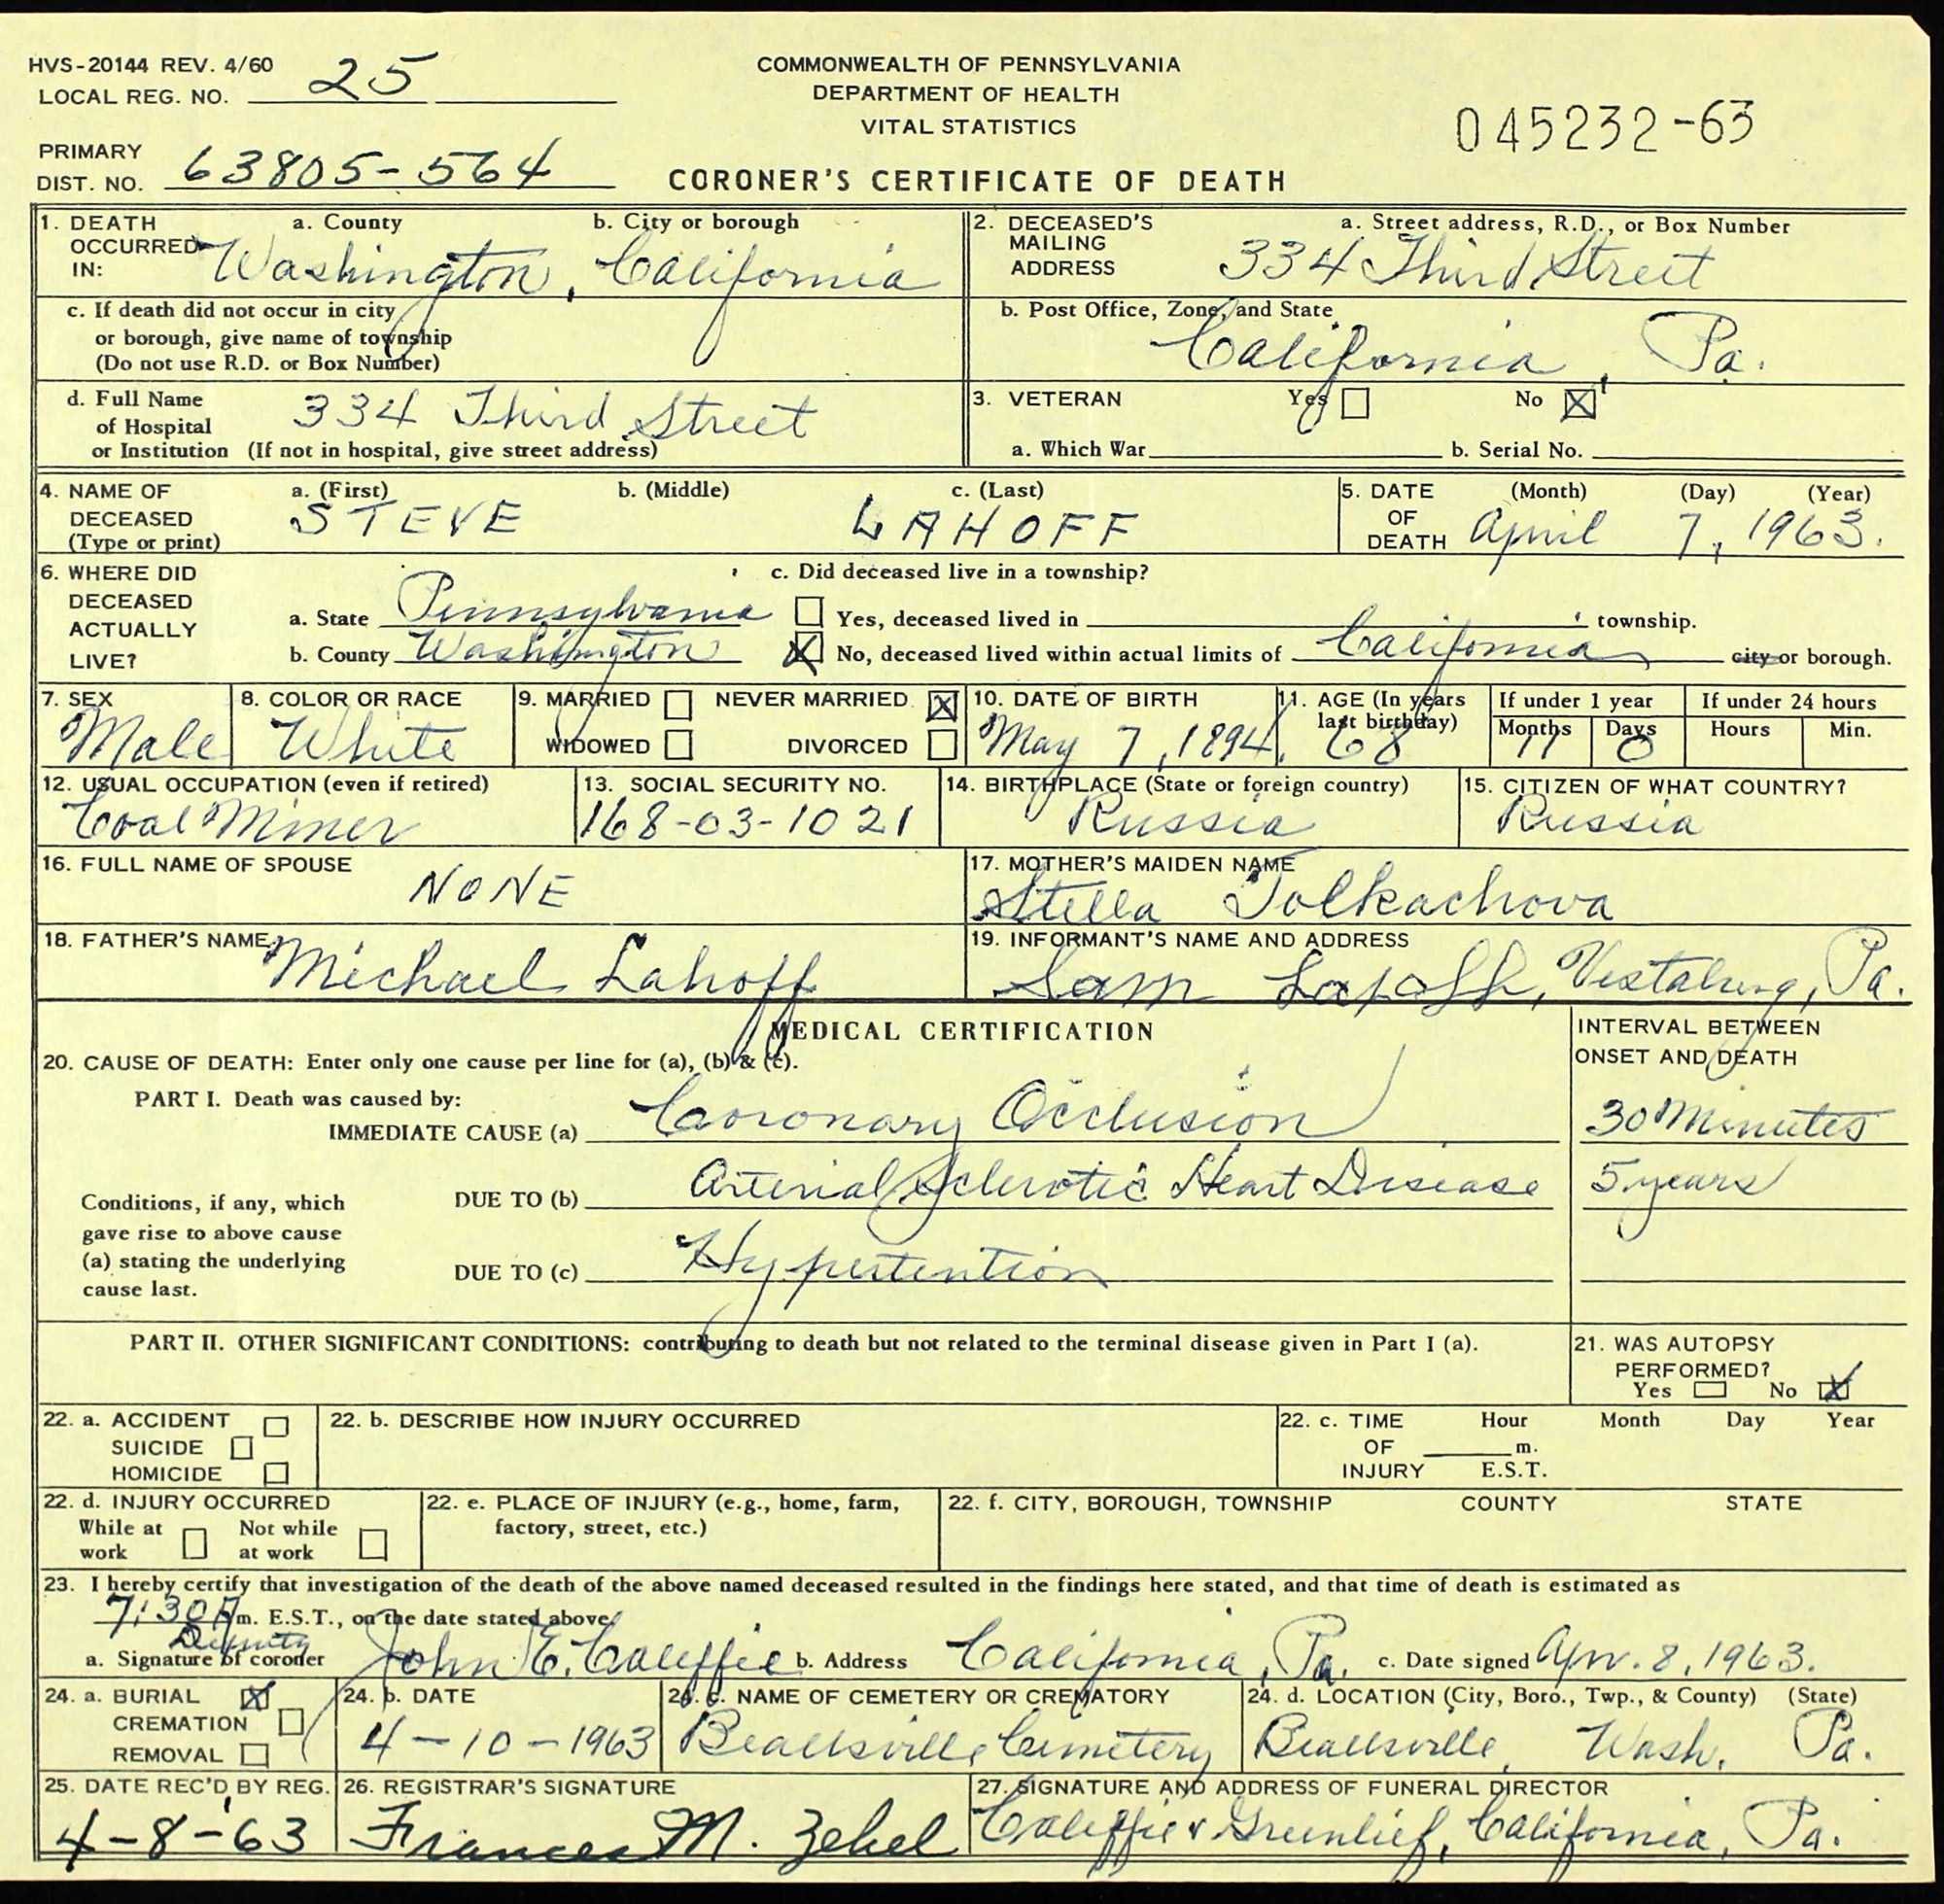 HVS-20144 REV. 4/60
LOCAL REG. NO. 25
COMMONWEALTH OF PENNSYLVANIA
DEPARTMENT OF HEALTH
VITAL STATISTICS
045232-63
PRIMARY
DIST. NO. 63805-564
CORONER'S CERTIFICATE OF DEATH
1. DEATH OCCURRED IN: a. County b. City or borough
Washington, California
c. If death did not occur in city
or borough, give name of township
(Do not use R.D. or Box Number)
d. Full Name
of Hospital
or Institution (If not in hospital, give street address)
334 Third Street
2. DECEASED'S MAILING ADDRESS a. Street address, R.D., or Box Number
334 Third Street
b. Post Office, Zone, and State
California, Pa.
3. VETERAN Yes No
a. Which War b. Serial No.
4. NAME OF DECEASED (Type or print) a. (First) b. (Middle) c. (Last)
STEVE LAHOFF
5. DATE OF DEATH (Month) (Day) (Year)
April 7, 1963.
6. WHERE DID DECEASED ACTUALLY LIVE?
a. State Pennsylvania
b. County Washington
c. Did deceased live in a township?
Yes, deceased lived in township.
No, deceased lived within actual limits of California city or borough.
7. SEX
Male
8. COLOR OR RACE
White
9. MARRIED NEVER MARRIED
WIDOWED DIVORCED
10. DATE OF BIRTH
May 7, 1894.
11. AGE (In years last birthday)
68
If under 1 year
Months Days
11 0
If under 24 hours
Hours Min.
12. USUAL OCCUPATION (even if retired)
Coal Miner
13. SOCIAL SECURITY NO.
168-03-1021
14. BIRTHPLACE (State or foreign country)
Russia
15. CITIZEN OF WHAT COUNTRY?
Russia
16. FULL NAME OF SPOUSE
NONE
17. MOTHER'S MAIDEN NAME
Stella Tolkachova
18. FATHER'S NAME
Michael Lahoff
19. INFORMANT'S NAME AND ADDRESS
Sam Vestaburg, Pa.
MEDICAL CERTIFICATION
INTERVAL BETWEEN
ONSET AND DEATH
20. CAUSE OF DEATH: Enter only one cause per line for (a), (b) & (c).
PART I. Death was caused by:
IMMEDIATE CAUSE (a) Coronary Occlusion 30 Minutes
Conditions, if any, which
gave rise to above cause
(a) stating the underlying
cause last.
DUE TO (b) Arterial Sclerotic Heart Disease 5 years
DUE TO (c) Hypertention
PART II. OTHER SIGNIFICANT CONDITIONS: contributing to death but not related to the terminal disease given in Part I (a).
21. WAS AUTOPSY
PERFORMED?
Yes No
22. a. ACCIDENT
SUICIDE
HOMICIDE
22. b. DESCRIBE HOW INJURY OCCURRED
22. c. TIME OF INJURY Hour Month Day Year
m.
E.S.T.
22. d. INJURY OCCURRED
While at work Not while at work
22. e. PLACE OF INJURY (e.g., home, farm,
factory, street, etc.)
22. f. CITY, BOROUGH, TOWNSHIP COUNTY STATE
23. I hereby certify that investigation of the death of the above named deceased resulted in the findings here stated, and that time of death is estimated as
7:30 A m. E.S.T., on the date stated above.
Deputy
a. Signature of coroner John E. Caleffie b. Address California, Pa. c. Date signed Apr. 8, 1963.
24. a. BURIAL
CREMATION
REMOVAL
24. b. DATE
4-10-1963
24. c. NAME OF CEMETERY OR CREMATORY
Beallsville Cemetery
24. d. LOCATION (City, Boro., Twp., & County) (State)
Beallsville, Wash. Pa.
25. DATE REC'D BY REG.
4-8-63
26. REGISTRAR'S SIGNATURE
Frances M. Zebel
27. SIGNATURE AND ADDRESS OF FUNERAL DIRECTOR
Caleffie & Greenlief, California, Pa.